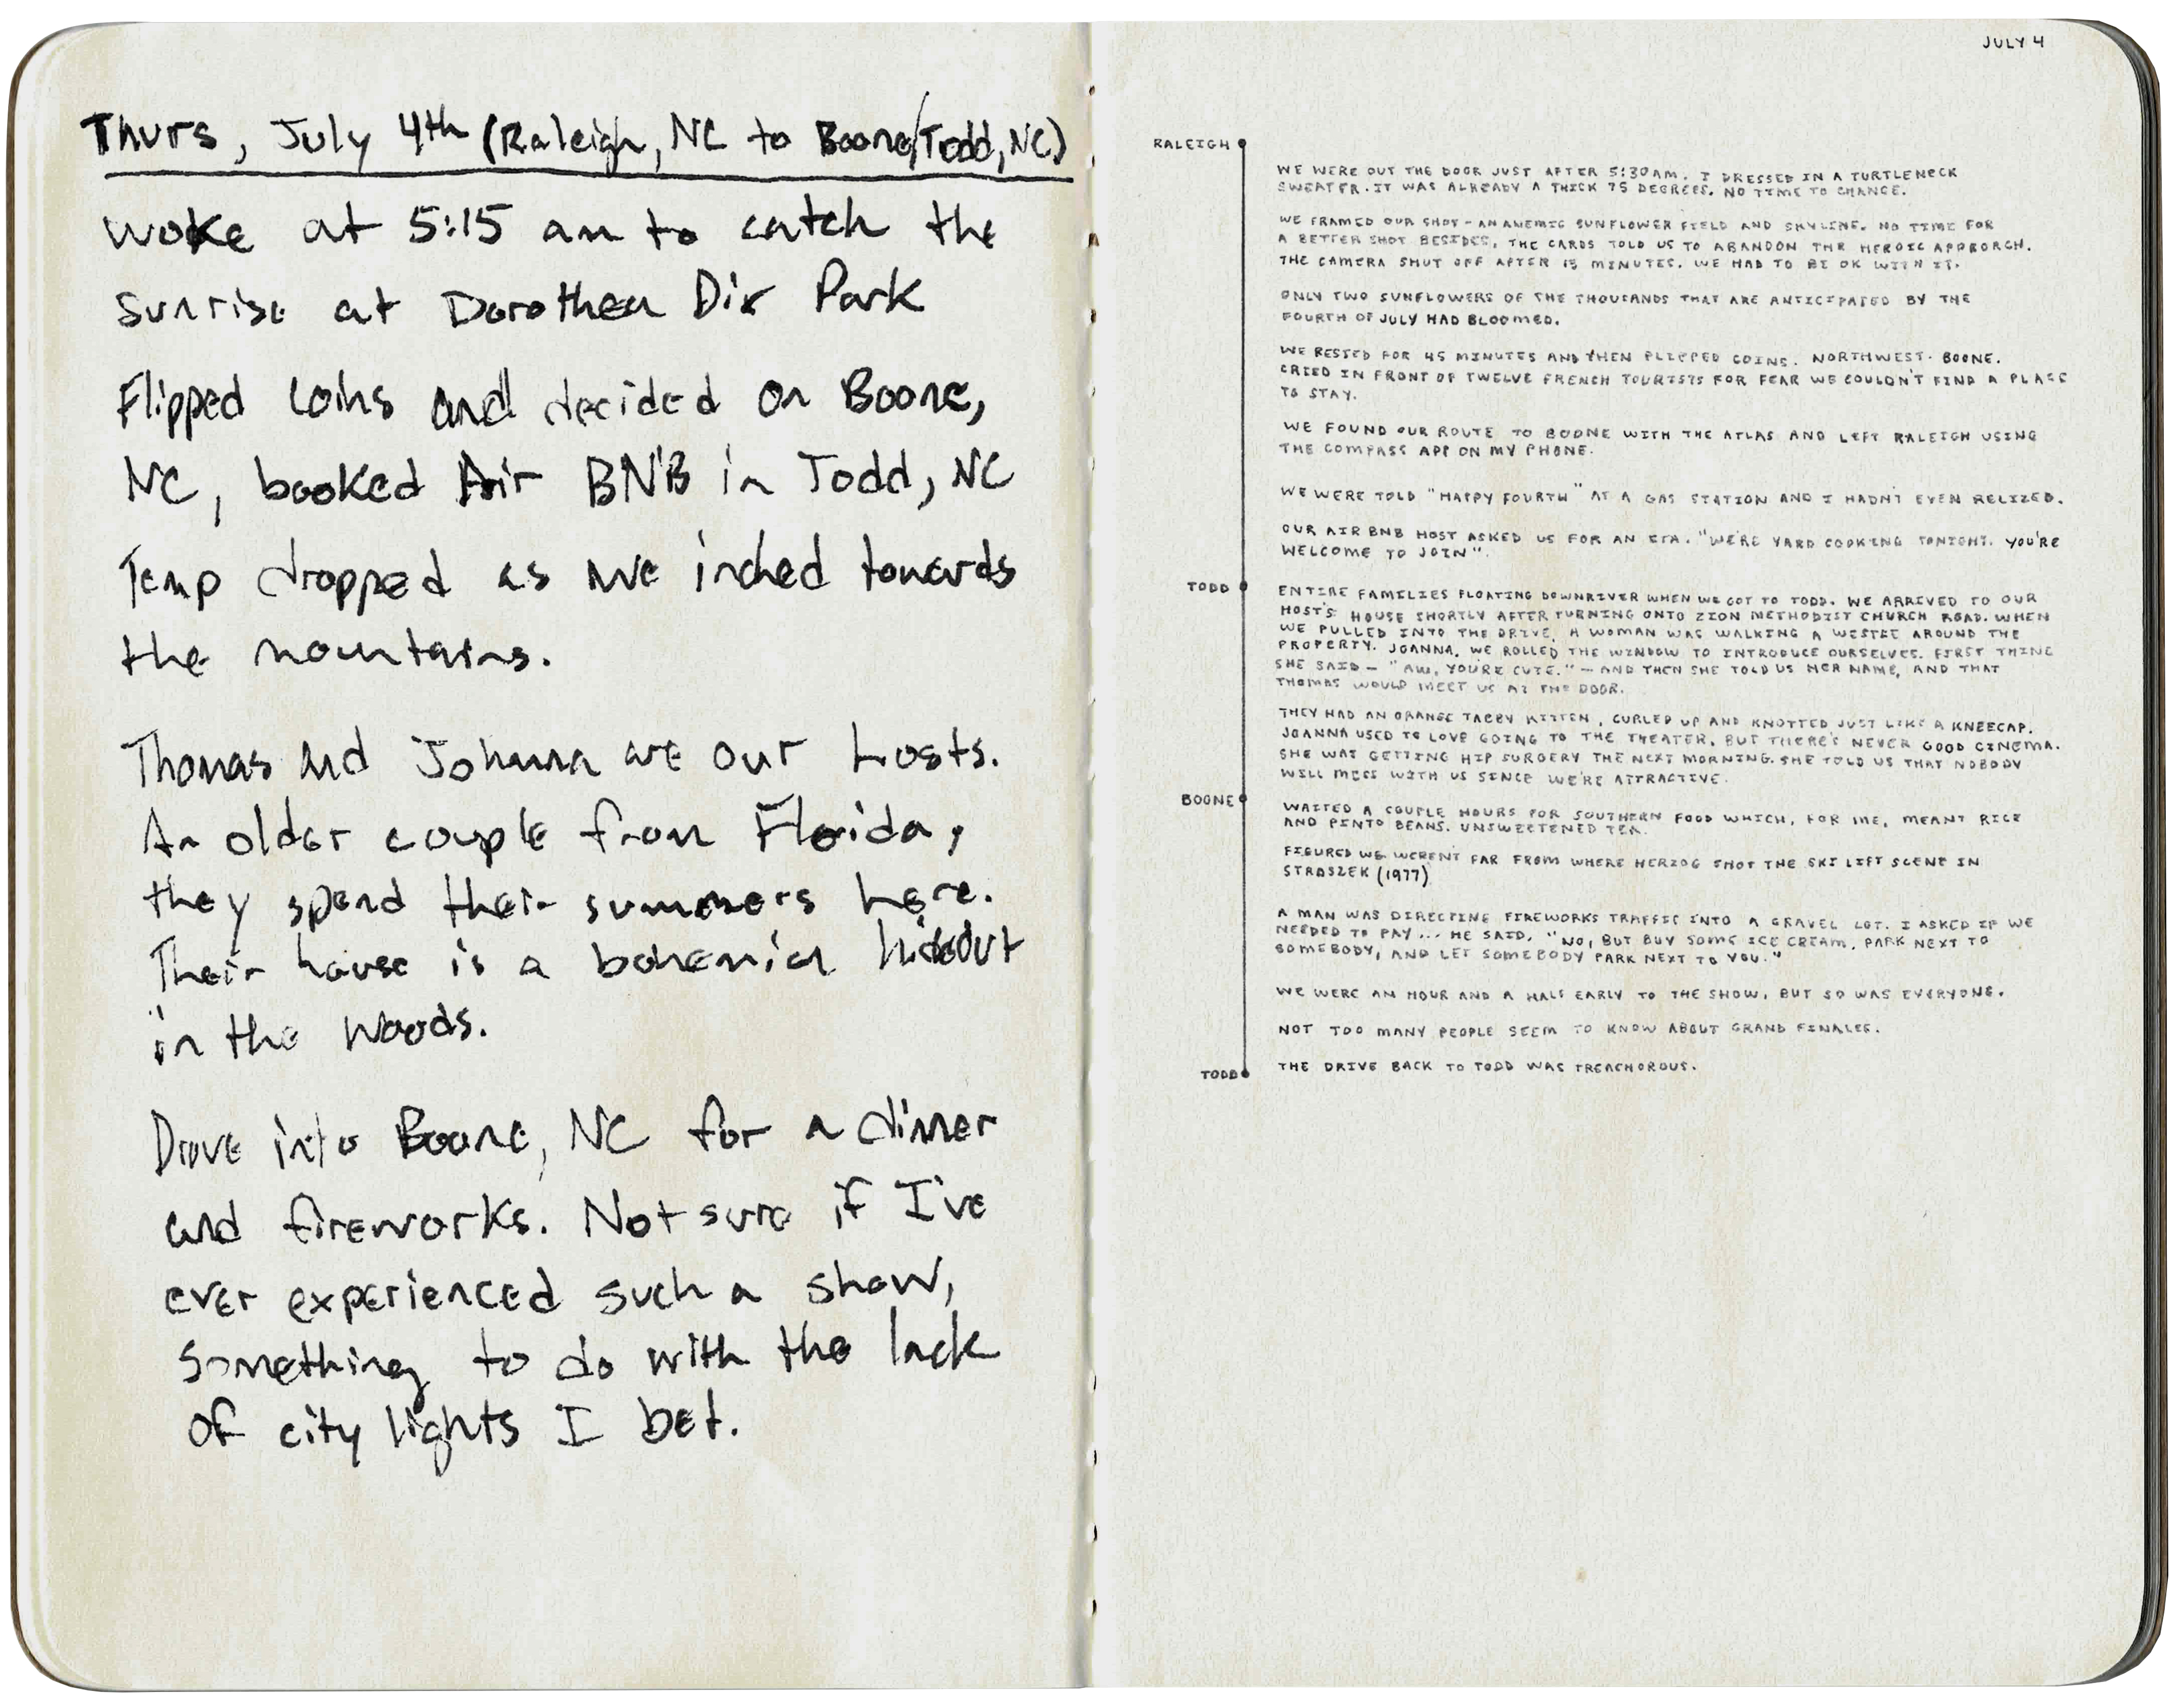 Thurs, July 4th (Raleigh, NC to Boone/Todd, NC)
woke at 5:15 am to catch the
sunrise at Dorothea Dix Park
Flipped coins and decided on Boone,
NC, booked Air BNB in Todd, NC
Temp dropped as we inched towards
the mountains.
Thomas and Johanna are our hosts.
An older couple from Florida,
they spend their summers here.
Their house is a bohemian hideout
in the woods.
Drove into Boone, NC for a dinner
and fireworks. Not sure if I've
ever experienced such a show,
something to do with the lack
of city lights I bet.
JULY 4
RALEIGH
WE WERE OUT THE DOOR JUST AFTER 5:30AM. I DRESSED IN A TURTLENECK
SWEATER. IT WAS ALREADY A THICK 75 DEGREES. NO TIME TO CHANGE.
WE FRAMED OUR SHOT - AN ANEMIC SUNFLOWER FIELD AND SKYLINE. NO TIME FOR
A BETTER SHOT BESIDES, THE CARDS TOLD US TO ABANDON THE HEROIC APPROACH.
THE CAMERA SHUT OFF AFTER 15 MINUTES. WE HAD TO BE OK WITH IT.
ONLY TWO SUNFLOWERS OF THE THOUSANDS THAT ARE ANTICIPATED BY THE
FOURTH OF JULY HAD BLOOMED.
WE RESTED FOR 45 MINUTES AND THEN FLIPPED COINS. NORTHWEST. BOONE.
CRIED IN FRONT OF TWELVE FRENCH TOURISTS FOR FEAR WE COULDN'T FIND A PLACE
TO STAY.
WE FOUND OUR ROUTE TO BOONE WITH THE ATLAS AND LEFT RALEIGH USING
THE COMPASS APP ON MY PHONE.
WE WERE TOLD "HAPPY FOURTH" AT A GAS STATION AND I HADN'T EVEN RELIZED.
OUR AIRBNB HOST ASKED US FOR AN ETA. "WE'RE YARD COOKING TONIGHT. YOU'RE
WELCOME TO JOIN".
TODD
ENTIRE FAMILIES FLOATING DOWNRIVER WHEN WE GOT TO TODD. WE ARRIVED TO OUR
HOST'S HOUSE SHORTLY AFTER TURNING ONTO ZION METHODIST CHURCH ROAD. WHEN
WE PULLED INTO THE DRIVE, A WOMAN WAS WALKING A WESTIE AROUND THE
PROPERTY. JOANNA. WE ROLLED THE WINDOW TO INTRODUCE OURSELVES. FIRST THING
SHE SAID - "AW, YOU'RE CUTE." - AND THEN SHE TOLD US HER NAME, AND THAT
THOMAS WOULD MEET US AT THE DOOR.
THEY HAD AN ORANGE TABBY KITTEN, CURLED UP AND KNOTTED JUST LIKE A KNEECAP.
JOANNA USED TO LOVE GOING TO THE THEATER, BUT THERE'S NEVER GOOD CINEMA.
SHE WAS GETTING HIP SURGERY THE NEXT MORNING. SHE TOLD US THAT NOBODY
WILL MESS WITH US SINCE WE'RE ATTRACTIVE.
BOONE
WAITED A COUPLE HOURS FOR SOUTHERN FOOD WHICH, FOR ME, MEANT RICE
AND PINTO BEANS. UNSWEETENED TEA.
FIGURED WE WEREN'T FAR FROM WHERE HERZOG SHOT THE SKI LIFT SCENE IN
STROSZEK (1977)
A MAN WAS DIRECTING FIREWORKS TRAFFIC INTO A GRAVEL LOT. I ASKED IF WE
NEEDED TO PAY... HE SAID, "NO, BUT BUY SOME ICE CREAM, PARK NEXT TO
SOMEBODY, AND LET SOMEBODY PARK NEXT TO YOU."
WE WERE AN HOUR AND A HALF EARLY TO THE SHOW, BUT SO WAS EVERYONE.
NOT TOO MANY PEOPLE SEEM TO KNOW ABOUT GRAND FINALES.
TODD
THE DRIVE BACK TO TODD WAS TREACHOROUS.